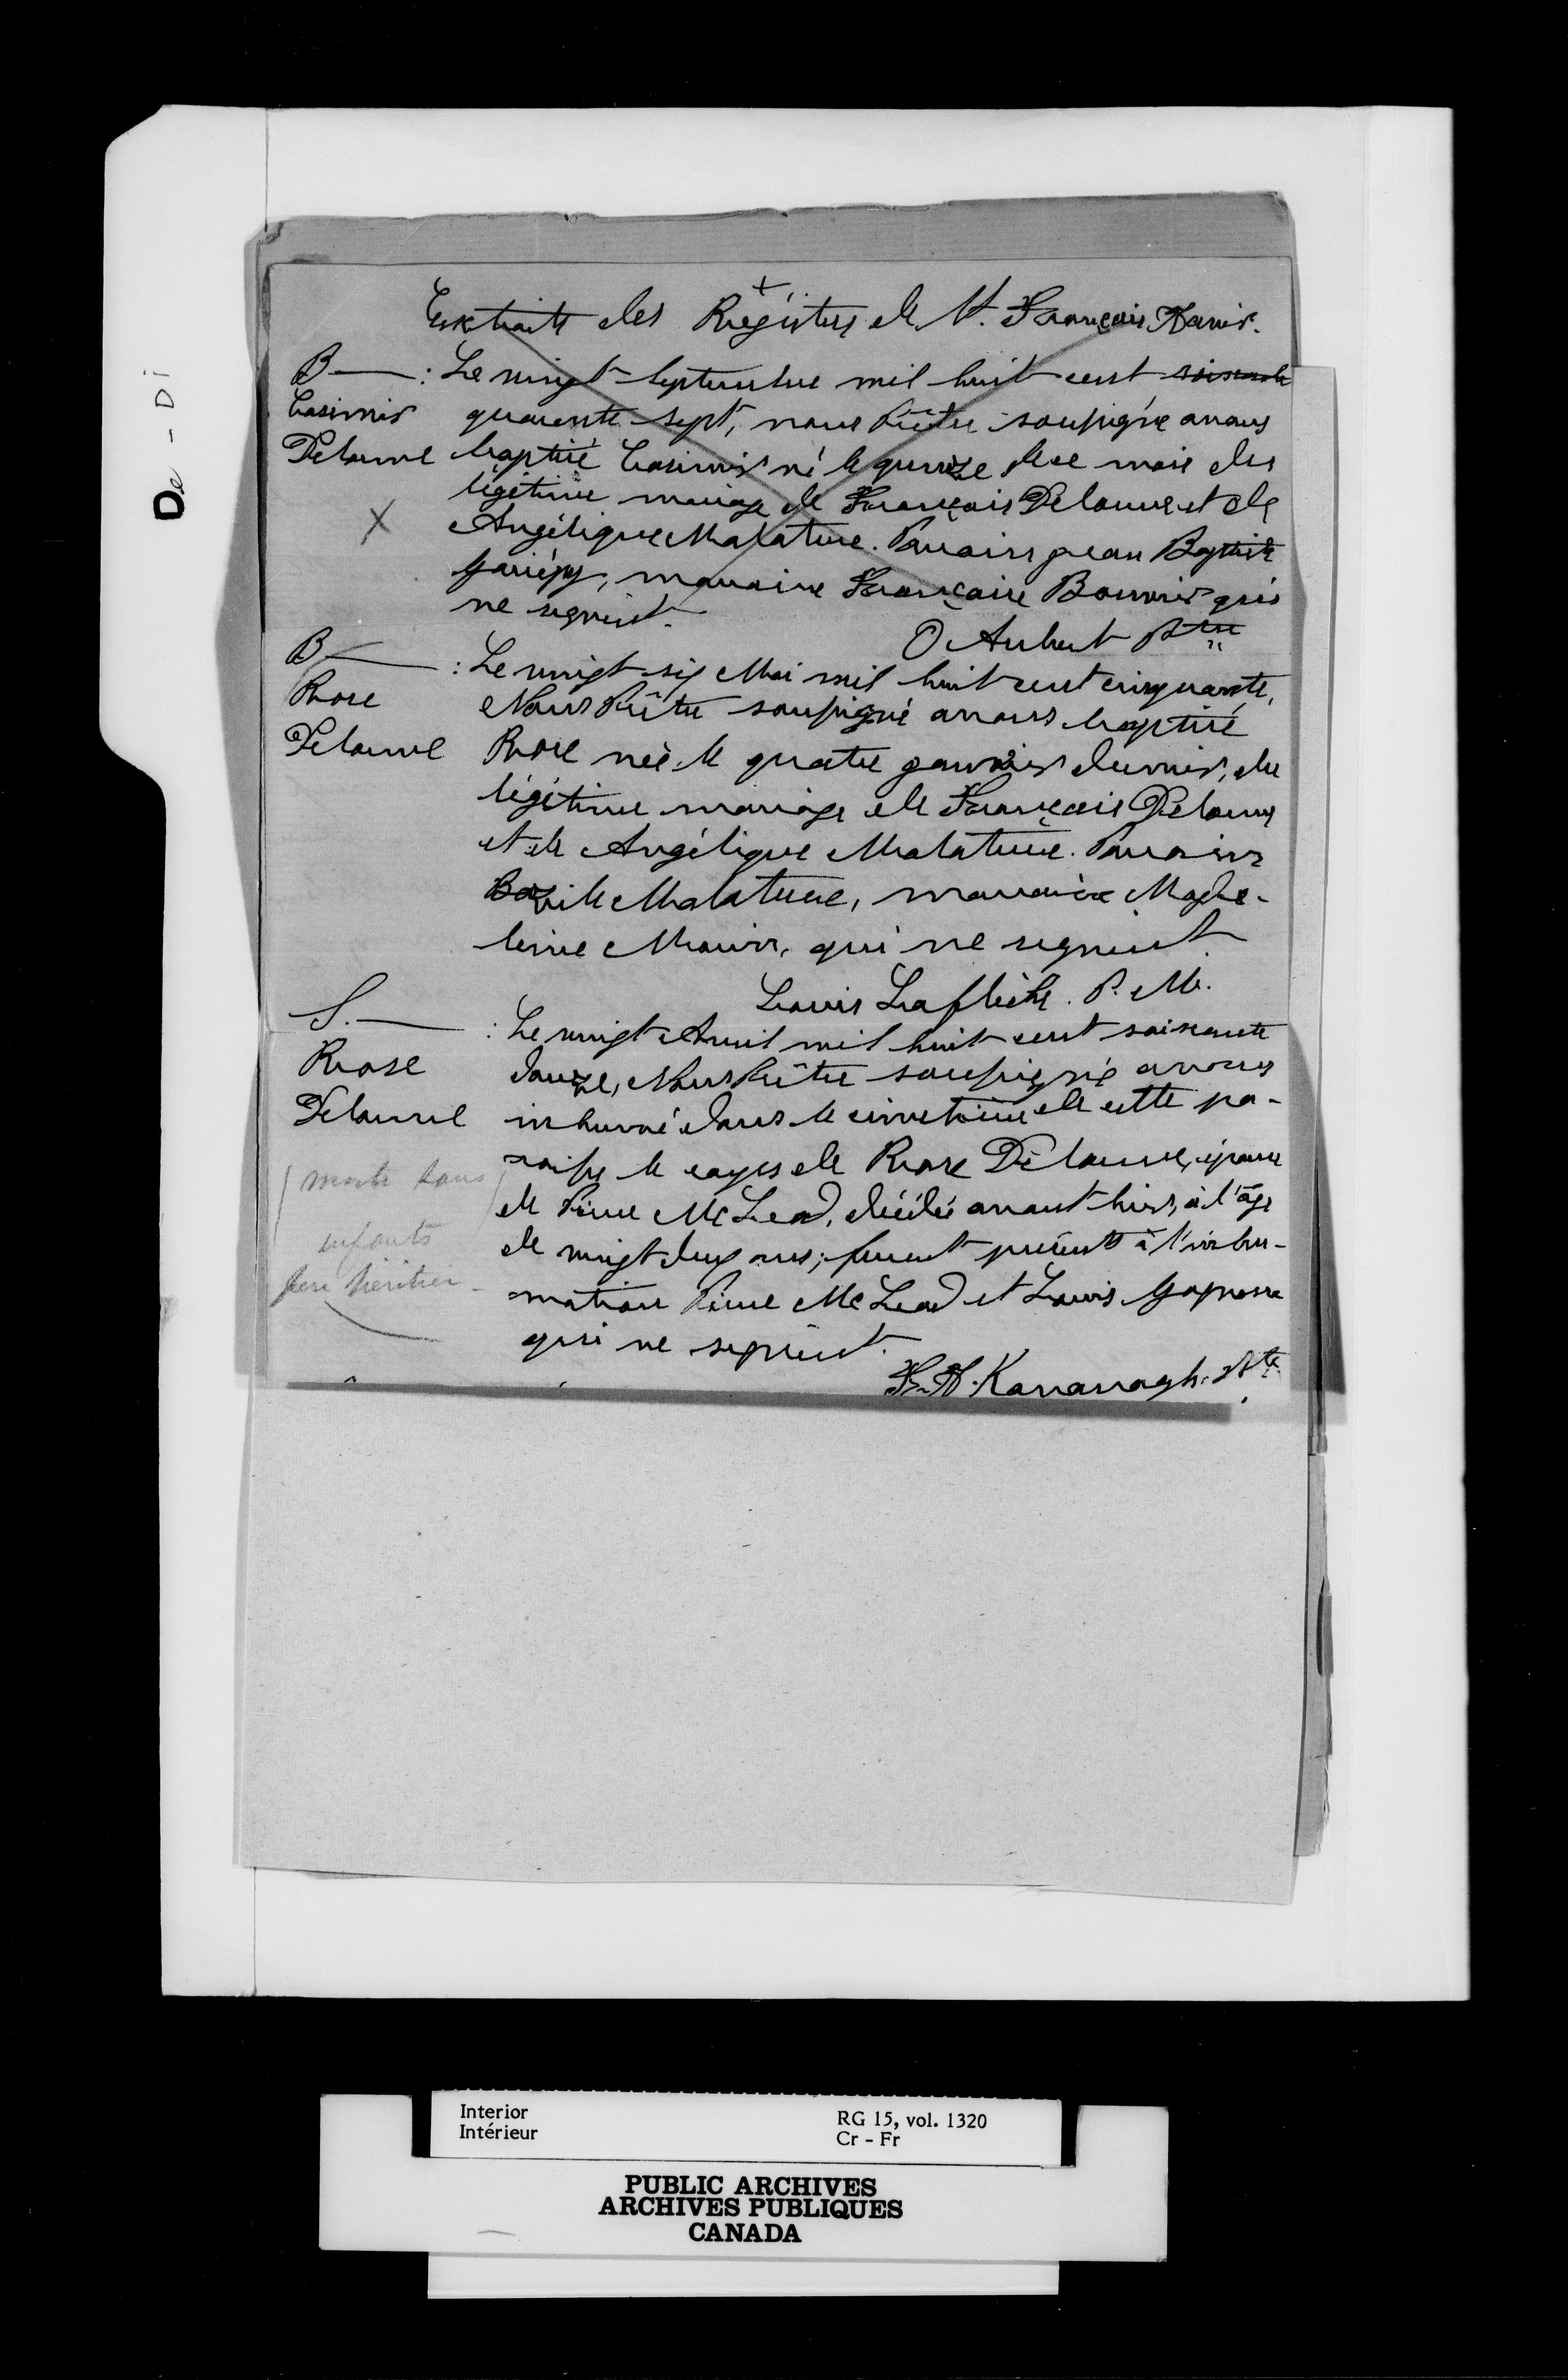 De - Di
Extraits des Régistres de St. François Xavier.
B—— : Le vingt Septembre mil huit cent soixante
Casimir quarente-sept, nous Prêtre soussigné avons
Delorme baptisé Casimir né le quinze de ce mois du
légitime mariage de François Delorme et de
X Angélique Malaterre. Parrain Jean Baptiste
Gariépy, marraine Françoise Bonmis qui
ne signent.
O Aubert Ptre
B—— : Le vingt-six Mai mil huit cent cinquante,
Rose Nous Prêtre soussigné avons baptisé
Delorme Rose née le quatre janvier dernier, du
légitime mariage de François Delorme
et de Angélique Malaterre. Parrain
Bazile Malaterre, marraine Made-
leine Morin, qui ne signent.
Louis Laflèche. P. M.
S.—— : Le vingt Avril mil huit cent soixante
Rose douze, Nous Prêtre soussigné avons
Delorme inhumé dans le cimetière de cette pa-
roisse le corps de Rose Delorme, épouse
(morte sans de Pierre McLeod, décédée avant hier, à l'âge
enfants de vingt deux ans; furent présents à l'inhu-
père héritier mation Pierre McLeod et Louis
qui ne signent.
F. X. Kavanagh. Ptre.
Interior
Intérieur
RG 15, vol. 1320
Cr - Fr
PUBLIC ARCHIVES
ARCHIVES PUBLIQUES
CANADA